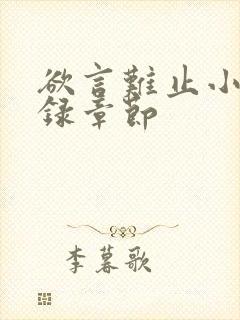 欲言難止小
錄章節
李暮歌